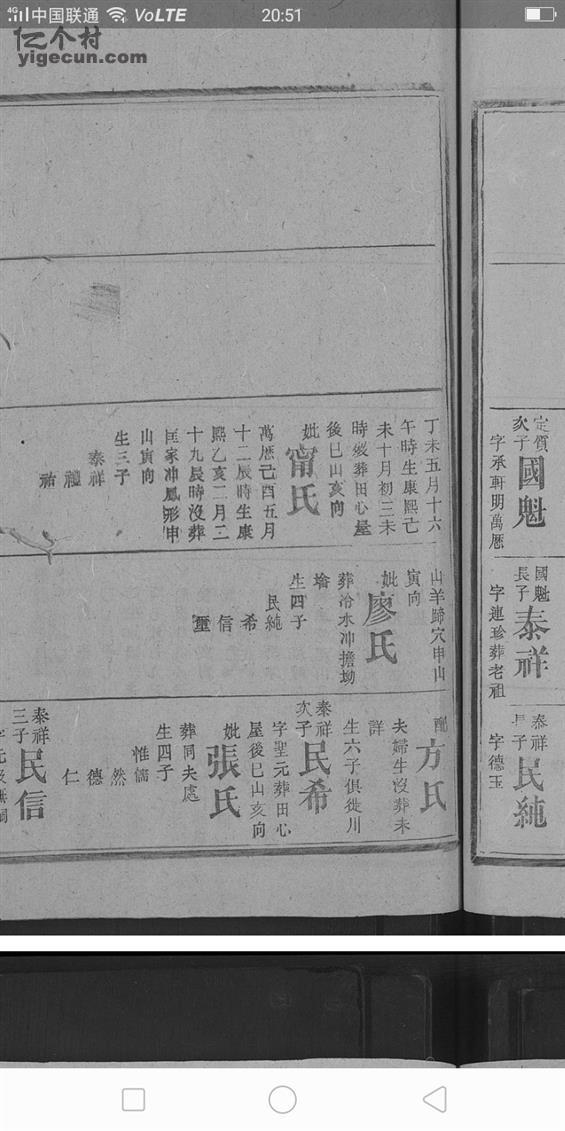 4G 中国联通 VoLTE 20:51
亿个村
yigecun.com
定賞
次子
國魁
字承軒明萬厯
丁未五月十六
午時生康熙亡
未十月初三未
時歿葬田心屋
後巳山亥向
妣甯氏
萬厯己酉五月
十二辰時生康
熙乙亥二月二
十九辰時沒葬
匡家冲鳳形申
山寅向
生三子
泰祥
禮
祐
國魁
長子
泰祥
字連珍葬老祖
山羊蹄穴申山
寅向
妣廖氏
葬冷水冲擔坳
塝
生四子
民純
希
信
璽
泰祥
長子
民純
字德玉
配方氏
夫婦生沒葬未
詳
生六子俱徙川
泰祥
次子
民希
字聖元葬田心
屋後巳山亥向
妣張氏
葬同夫處
生四子
惟儒
然
德
仁
泰祥
三子
民信